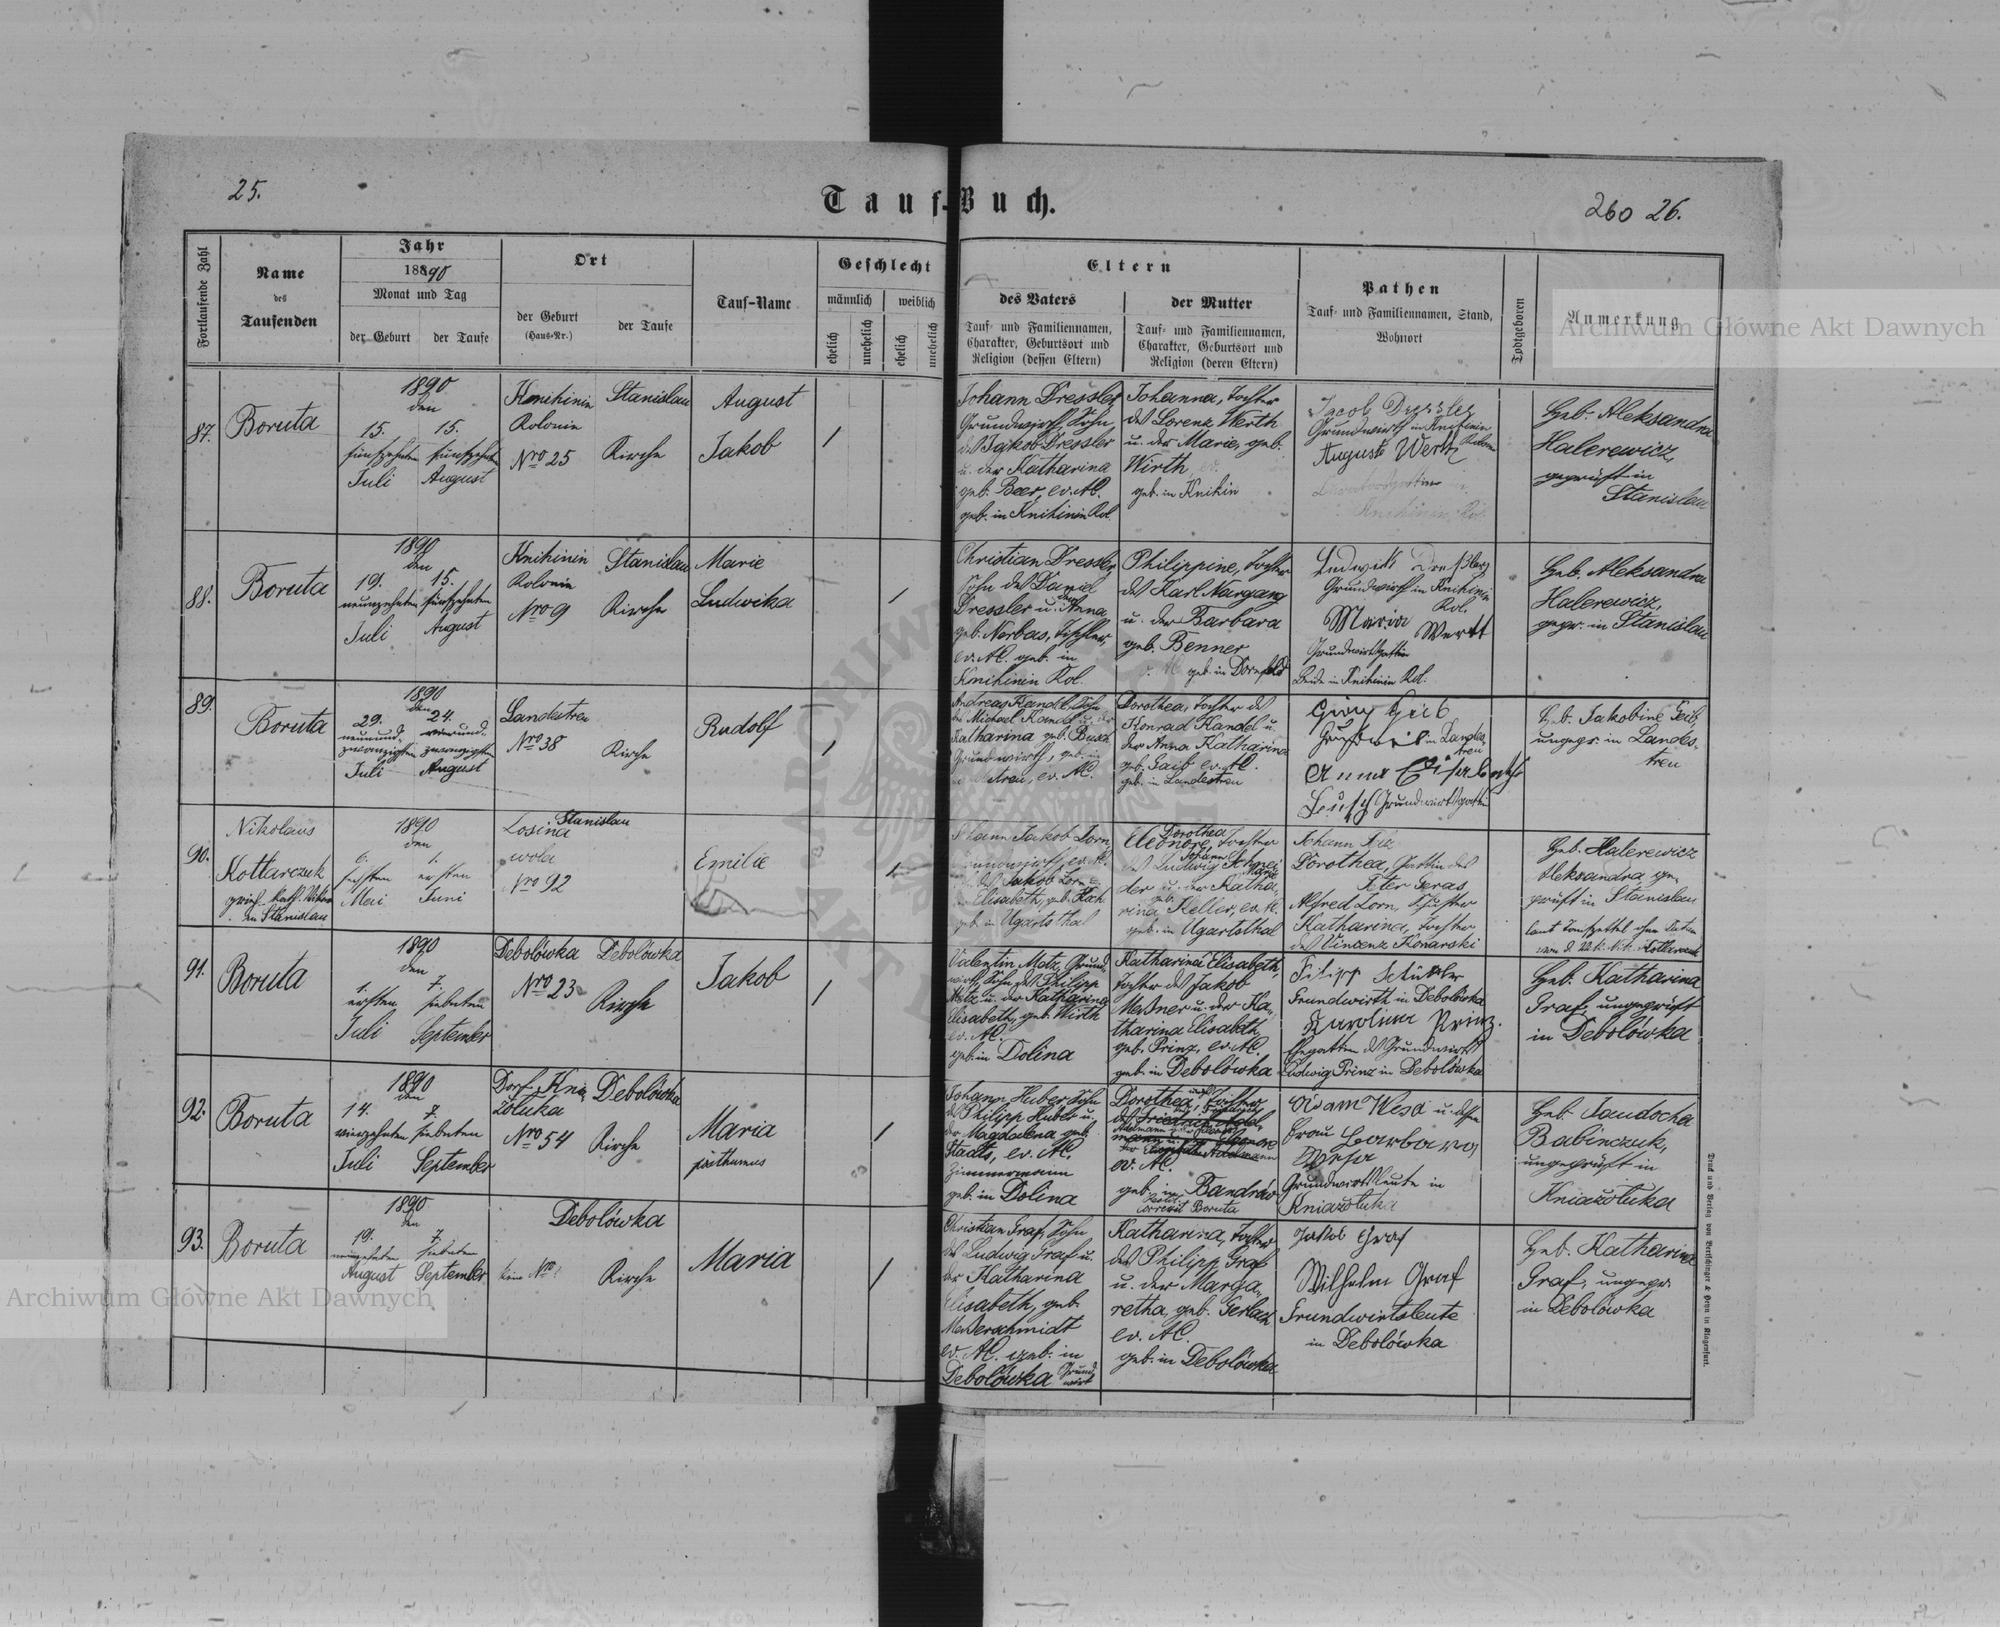 25.
Tauf-Buch.
260 26.
Fortlaufende Zahl
Name
des
Taufenden
Jahr
1890
Monat und Tag
der Geburt
der Taufe
Ort
der Geburt
(Haus-Nr.)
der Taufe
Tauf-Name
Geschlecht
männlich
weiblich
ehelich
unehelich
ehelich
unehelich
Eltern
des Vaters
Tauf- und Familiennamen,
Charakter, Geburtsort und
Religion (dessen Eltern)
der Mutter
Tauf- und Familiennamen,
Charakter, Geburtsort und
Religion (deren Eltern)
Pathen
Tauf- und Familiennamen, Stand,
Wohnort
Todtgeboren
Anmerkung
87.
Boruta
1890
den
15. 15.
fünfzehnten fünfzehnten
Juli August
Knihinin
Kolonie
Nro 25
Stanislau
Kirche
August
Jakob
/
Johann Dressler
Grundwirth, Sohn
des Jakob Dressler
u. der Katharina
geb. Beer, ev. AC.
geb. in Knihinin Kol.
Johanna, Tochter
des Lorenz Werth
u. der Marie, geb.
Wirth
geb. in Knihin
Jacob Dressler
Grundwirth in Knihinin
Kolonie
Auguste Werth
Knihinin Kol.
Heb. Aleksandra
Halerewicz,
geprüft in
Stanislau
88.
Boruta
1890
den
19. 15.
neunzehnten fünfzehnten
Juli August
Knihinin
Kolonie
Nro 9
Stanislau
Kirche
Marie
Ludwika
/
Christian Dressler
Sohn des Daniel
Dressler u. der Anna
geb. Norbas, Tischler,
ev. AC. geb. in
Knihinin Kol.
Philippine, Tochter
des Karl Nargang
u. der Barbara
geb. Benner
geb. in Dornfeld
Ludwik Dreßler
Grundwirth in Knihinin
Kol.
Maria Wertt
Grundwirthgattin
Beide in Knihinin Kol.
Heb. Aleksandra
Halerewicz,
gepr. in Stanislau
89.
Boruta
1890
den
29. 24.
neunund- vierund-
zwanzigsten zwanzigsten
Juli August
Landestreu
Nro 38
Kirche
Rudolf
/
Andreas Kandel, Sohn
des Michael Kandel u. der
Katharina geb. Busch
Grundwirth, geb. in
ev. AC.
Dorothea, Tochter des
Konrad Kandel u.
der Anna Katharina
geb. Gaib ev. AC.
geb. in Landestreu
Georg Geib
in Landes-
treu
Anna Elisabeth
Grundwirthsgattin
Heb. Jakobine Geib
ungepr. in Landes-
treu
90.
Nikolaus
Kotlarczuk
griech. kath. Vikar
in Stanislau
1890
den
6. 1.
sechsten ersten
Mai Juni
Losina
wola
Nro 92
Stanislau
Emilie
/
Johann Jakob Lorn
des Jakob Lorn
Elisabeth, geb. Koch
geb. in Ugartsthal
Dorothea
Eleonore, Tochter
des Ludwig Schnei-
der u. der Katha-
rina Keller, ev. AC.
geb. in Ugartsthal
Dorothea, Gattin des
Peter Geras
Alfred Lorn, Schuster
Katharina, Tochter
des Vincenz Konarski
Heb. Halerewicz
Aleksandra ge-
prüft in Stanislau
91.
Boruta
1890
den
1. 7.
ersten siebenten
Juli September
Debolówka
Nro 23
Debolówka
Kirche
Jakob
/
Valentin Motz, Grund-
wirth, Sohn des Philipp
Motz u. der Katharina
Elisabeth, geb. Wirth
ev. AC.
geb. in Dolina
Katharina Elisabeth,
Tochter des Jakob
Meßner u. der Ka-
tharina Elisabeth,
geb. Prinz, ev. AC.
geb. in Debolówka
Filipp
Grundwirth in Debolówka
Karolina Prinz.
Ehegattin des Grundwirths
Ludwig Prinz in Debolówka
Heb. Katharina
Graf, ungeprüft
in Debolówka
92.
Boruta
1890
den
14. 7.
vierzehnten siebenten
Juli September
Dorf Knia-
żołuka
Nro 54
Debolówka
Kirche
Maria
posthumus
/
Johann Huber, Sohn
des Philipp Huber u.
der Magdalena geb.
Stadts, ev. AC.
Zimmermann
geb. in Dolina
Dorothea, Tochter
des Friedrich Adel-
mann u. der Eleonore
ev. AC.
geb. in Bandrów
correxit Boruta
Adam Wesa u. dessen
Frau Barbara
Wesa
Grundwirthsleute in
Kniażołuka
Heb. Jaudocha
Babinczuk,
ungeprüft in
Kniażołuka
93.
Boruta
1890
den
19. 7.
neunzehnten siebenten
August September
Debolówka
kein Nro
Kirche
Maria
/
Christian Graf, Sohn
des Ludwig Graf u.
der Katharina
Elisabeth, geb.
Messerschmidt
ev. AC. geb. in
Debolówka Grund-
wirth
Katharina, Tochter
des Philipp Graf
u. der Marga-
retha, geb. Gerlach
ev. AC.
geb. in Debolówka
Jakob Graf
Wilhelm Graf
Grundwirtsleute
in Debolówka
Heb. Katharina
Graf, ungepr.
in Debolówka
Archiwum Główne Akt Dawnych
Archiwum Główne Akt Dawnych